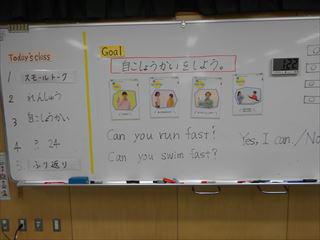 Today's class
1 スモールトーク
2 れんしゅう
3 自こしょうかい
4 P. 24
5 ふり返り
Goal
自こしょうかいをしよう。
Can you run fast?
Can you swim fast?
Yes, I can. / No